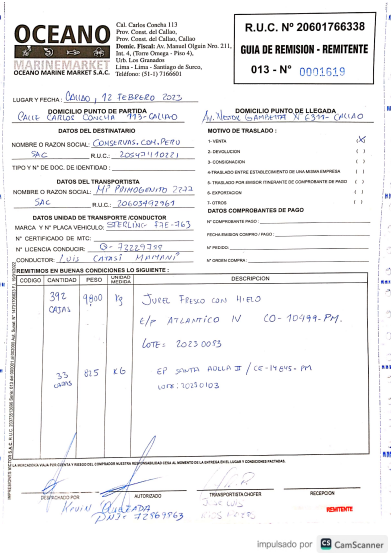 OCEANO
MARINEMARKET
OCEANO MARINE MARKET S.A.C.
Cal. Carlos Concha 113
Prov. Const. del Callao,
Prov. Const. del Callao, Callao
Domic. Fiscal: Av. Manuel Olguin Nro. 211,
Int. 4, (Torre Omega - Piso 4)
Urb. Los Granados
Lima - Lima - Santiago de Surco,
Teléfono: (51-1) 7166601
R.U.C. Nº 20601766338
GUIA DE REMISION - REMITENTE
013 - Nº 0001619
LUGAR Y FECHA: CALLAO, 12 FEBRERO 2023
DOMICILIO PUNTO DE PARTIDA
CALLE CARLOS CONCHA 113-CALLAO
DOMICILIO PUNTO DE LLEGADA
AV. NESTOR GAMBETTA N 6311-CALLAO
DATOS DEL DESTINATARIO
NOMBRE O RAZON SOCIAL: CONSERVAS.COM.PERU
SAC R.U.C.:
TIPO Y Nº DOC. DE IDENTIDAD:
DATOS DEL TRANSPORTISTA
NOMBRE O RAZON SOCIAL: Mi PRIMOGENITO
SAC R.U.C.:
DATOS UNIDAD DE TRANSPORTE /CONDUCTOR
MARCA Y Nº PLACA VEHÍCULO: STERLING F7E-763
N° CERTIFICADO DE MTC:
N° LICENCIA CONDUCIR:
CONDUCTOR: LUIS CATASI MAMANI
MOTIVO DE TRASLADO:
1- VENTA (X)
2- DEVOLUCION ( )
3- CONSIGNACION ( )
4-TRASLADO ENTRE ESTABLECIMIENTO DE UNA MISMA EMPRESA ( )
5- TRASLADO POR EMISOR ITINERANTE DE COMPROBANTE DE PAGO ( )
6- EXPORTACION ( )
7- OTROS ( )
DATOS COMPROBANTES DE PAGO
Nº COMPROBANTE PAGO:
FECHA EMISION COMPRO / PAGO:
Nº PEDIDO:
Nº ORDEN COMPRA:
REMITIMOS EN BUENAS CONDICIONES LO SIGUIENTE :
CODIGO CANTIDAD PESO UNIDAD MEDIDA DESCRIPCION
392 9,800 Kg JUREL FRESCO CON HIELO
CAJAS
E/P ATLANTICO IV CO-10499-PM.
LOTE: 20230083
33 825 KG EP SANTA ADELA II / CE-14845-PM
CAJAS
LOTE: 20230103
LA MERCADERIA VIAJA POR CUENTA Y RIESGO DEL COMPRADOR NUESTRA RESPONSABILIDAD CESA AL MOMENTO DE LA ENTREGA EN LUGAR Y CONDICIONES PACTADAS.
DESPACHADO POR AUTORIZADO TRANSPORTISTA CHOFER RECEPCION
KEVIN QUEZADA
DNI: 72869863
REMITENTE
impulsado por CS CamScanner